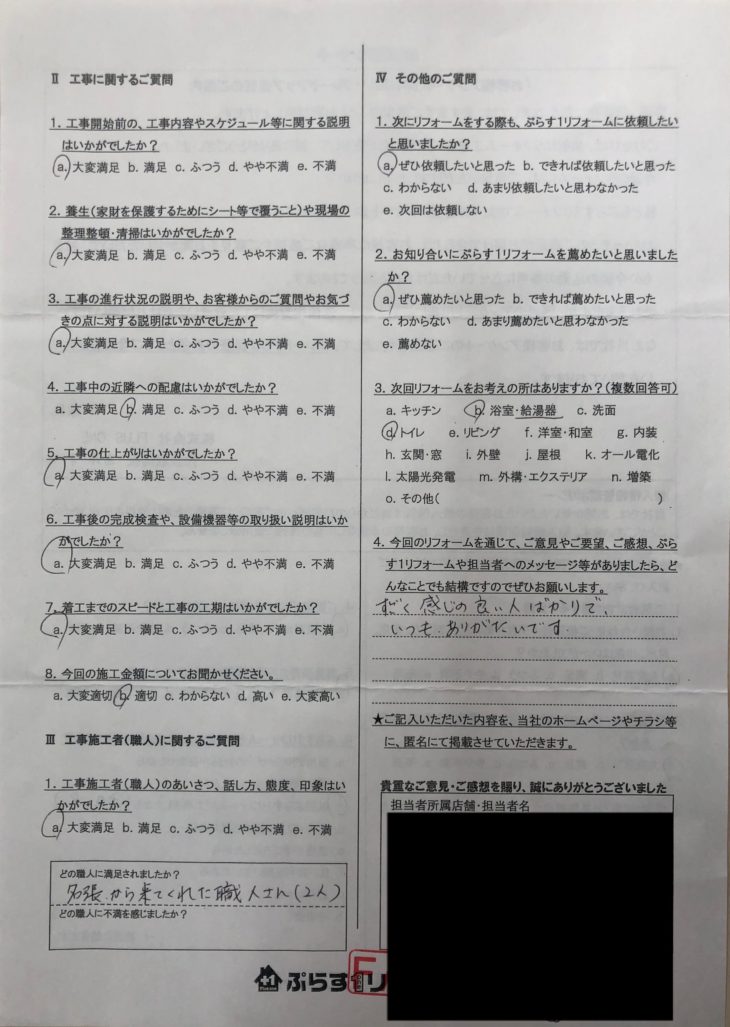 Ⅱ 工事に関するご質問
1. 工事開始前の、工事内容やスケジュール等に関する説明
はいかがでしたか？
a. 大変満足 b. 満足 c. ふつう d. やや不満 e. 不満
2. 養生(家財を保護するためにシート等で覆うこと)や現場の
整理整頓・清掃はいかがでしたか？
a. 大変満足 b. 満足 c. ふつう d. やや不満 e. 不満
3. 工事の進行状況の説明や、お客様からのご質問やお気づ
きの点に対する説明はいかがでしたか？
a. 大変満足 b. 満足 c. ふつう d. やや不満 e. 不満
4. 工事中の近隣への配慮はいかがでしたか？
a. 大変満足 b. 満足 c. ふつう d. やや不満 e. 不満
5. 工事の仕上がりはいかがでしたか？
a. 大変満足 b. 満足 c. ふつう d. やや不満 e. 不満
6. 工事後の完成検査や、設備機器等の取り扱い説明はいか
がでしたか？
a. 大変満足 b. 満足 c. ふつう d. やや不満 e. 不満
7. 着工までのスピードと工事の工期はいかがでしたか？
a. 大変満足 b. 満足 c. ふつう d. やや不満 e. 不満
8. 今回の施工金額についてお聞かせください。
a. 大変適切 b. 適切 c. わからない d. 高い e. 大変高い
Ⅲ 工事施工者(職人)に関するご質問
1. 工事施工者(職人)のあいさつ、話し方、態度、印象はい
かがでしたか？
a. 大変満足 b. 満足 c. ふつう d. やや不満 e. 不満
どの職人に満足されましたか？
名張から来てくれた職人さん(2人)
どの職人に不満を感じましたか？
Ⅳ その他のご質問
1. 次にリフォームをする際も、ぷらす1リフォームに依頼したい
と思いましたか？
a. ぜひ依頼したいと思った b. できれば依頼したいと思った
c. わからない d. あまり依頼したいと思わなかった
e. 次回は依頼しない
2. お知り合いにぷらす1リフォームを薦めたいと思いました
か？
a. ぜひ薦めたいと思った b. できれば薦めたいと思った
c. わからない d. あまり薦めたいと思わなかった
e. 薦めない
3. 次回リフォームをお考えの所はありますか？(複数回答可)
a. キッチン b. 浴室・給湯器 c. 洗面
d. トイレ e. リビング f. 洋室・和室 g. 内装
h. 玄関・窓 i. 外壁 j. 屋根 k. オール電化
l. 太陽光発電 m. 外構・エクステリア n. 増築
o. その他( )
4. 今回のリフォームを通じて、ご意見やご要望、ご感想、ぷら
す1リフォームや担当者へのメッセージ等がありましたら、ど
んなことでも結構ですのでぜひお願いします。
すごく感じの良い人ばかりで、
いつもありがたいです
★ご記入いただいた内容を、当社のホームページやチラシ等
に、匿名にて掲載させていただきます。
貴重なご意見・ご感想を賜り、誠にありがとうございました
担当者所属店舗・担当者名
+1
ぷらす1リ